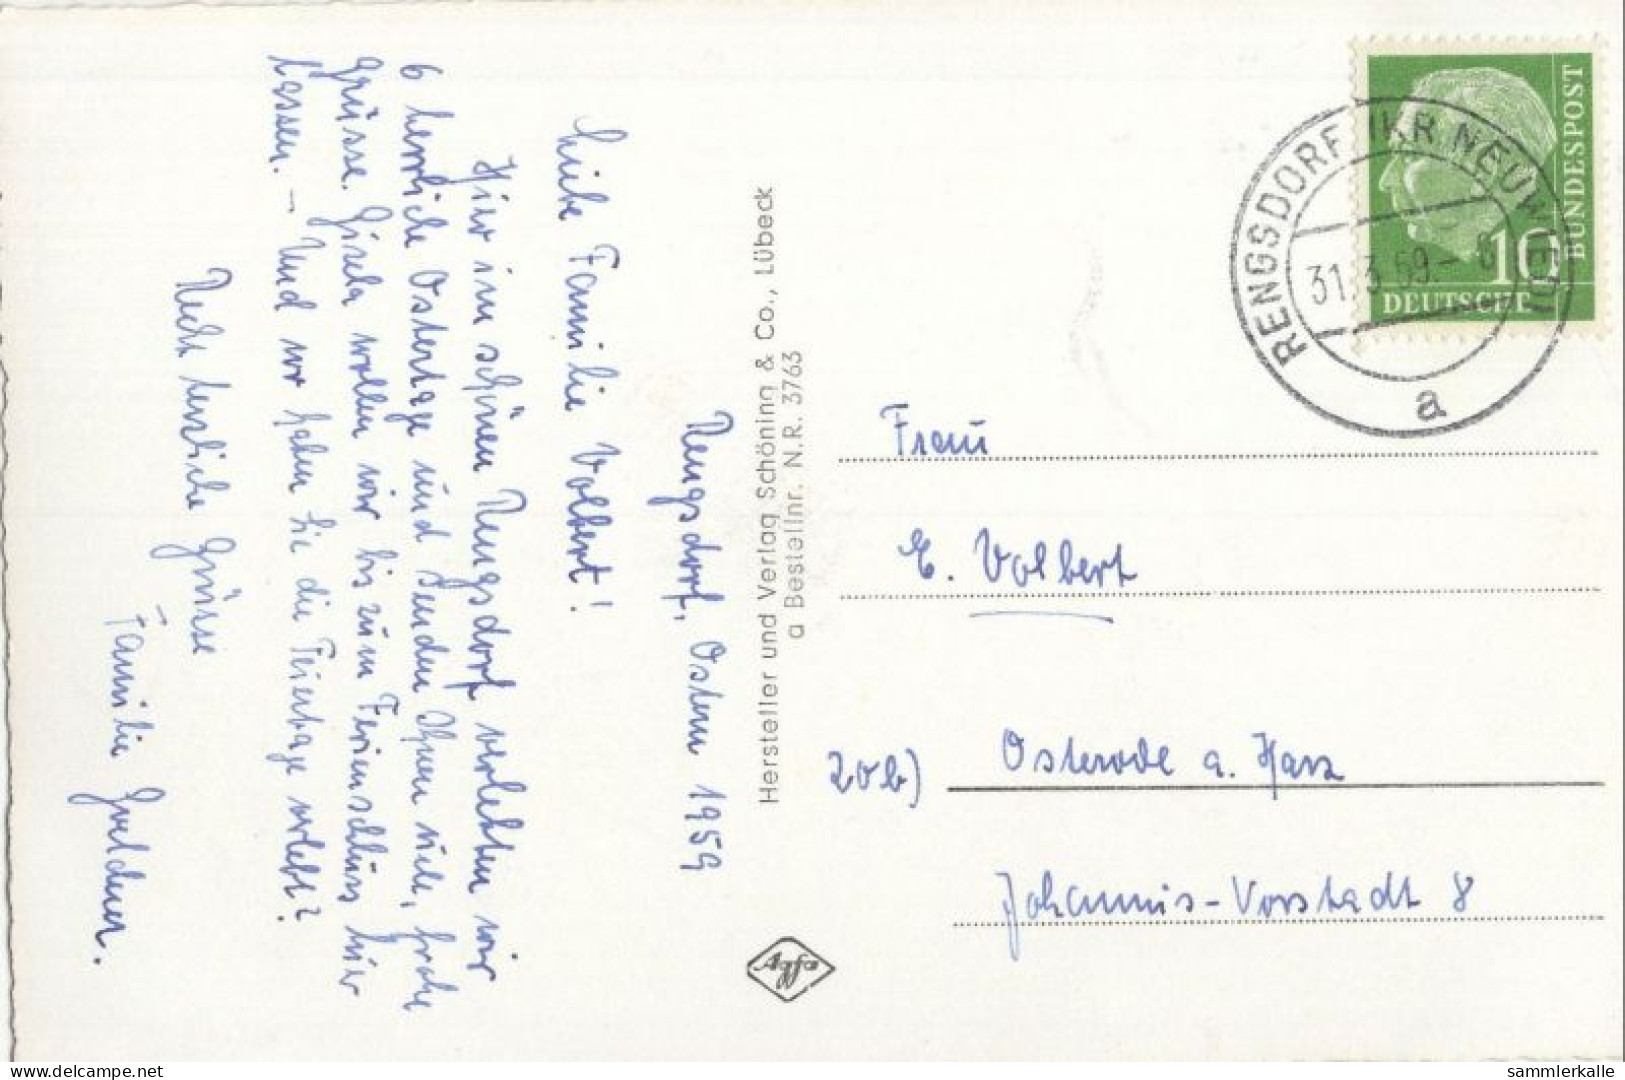 Rengsdorf, Ostern 1959
Liebe Familie Volbert!
Hier im schönen Rengsdorf verlebten wir
6 herrliche Ostertage und senden Ihnen viele, frohe
Grüsse. Gisela wollen wir bis zum Ferienschluss hier
lassen. - Und wo haben Sie die Feiertage verlebt?
Recht herzliche Grüsse
Familie
Hersteller und Verlag Schöning & Co., Lübeck
a Bestellnr. N.R. 3763
Agfa
RENGSDORF (KR NEUWIED)
31.3.59.- 8
a
10
DEUTSCHE
BUNDESPOST
Frau
E. Volbert
20b) Osterode a. Harz
Johannis-Vorstadt 8
delcampe.net
sammlerkalle